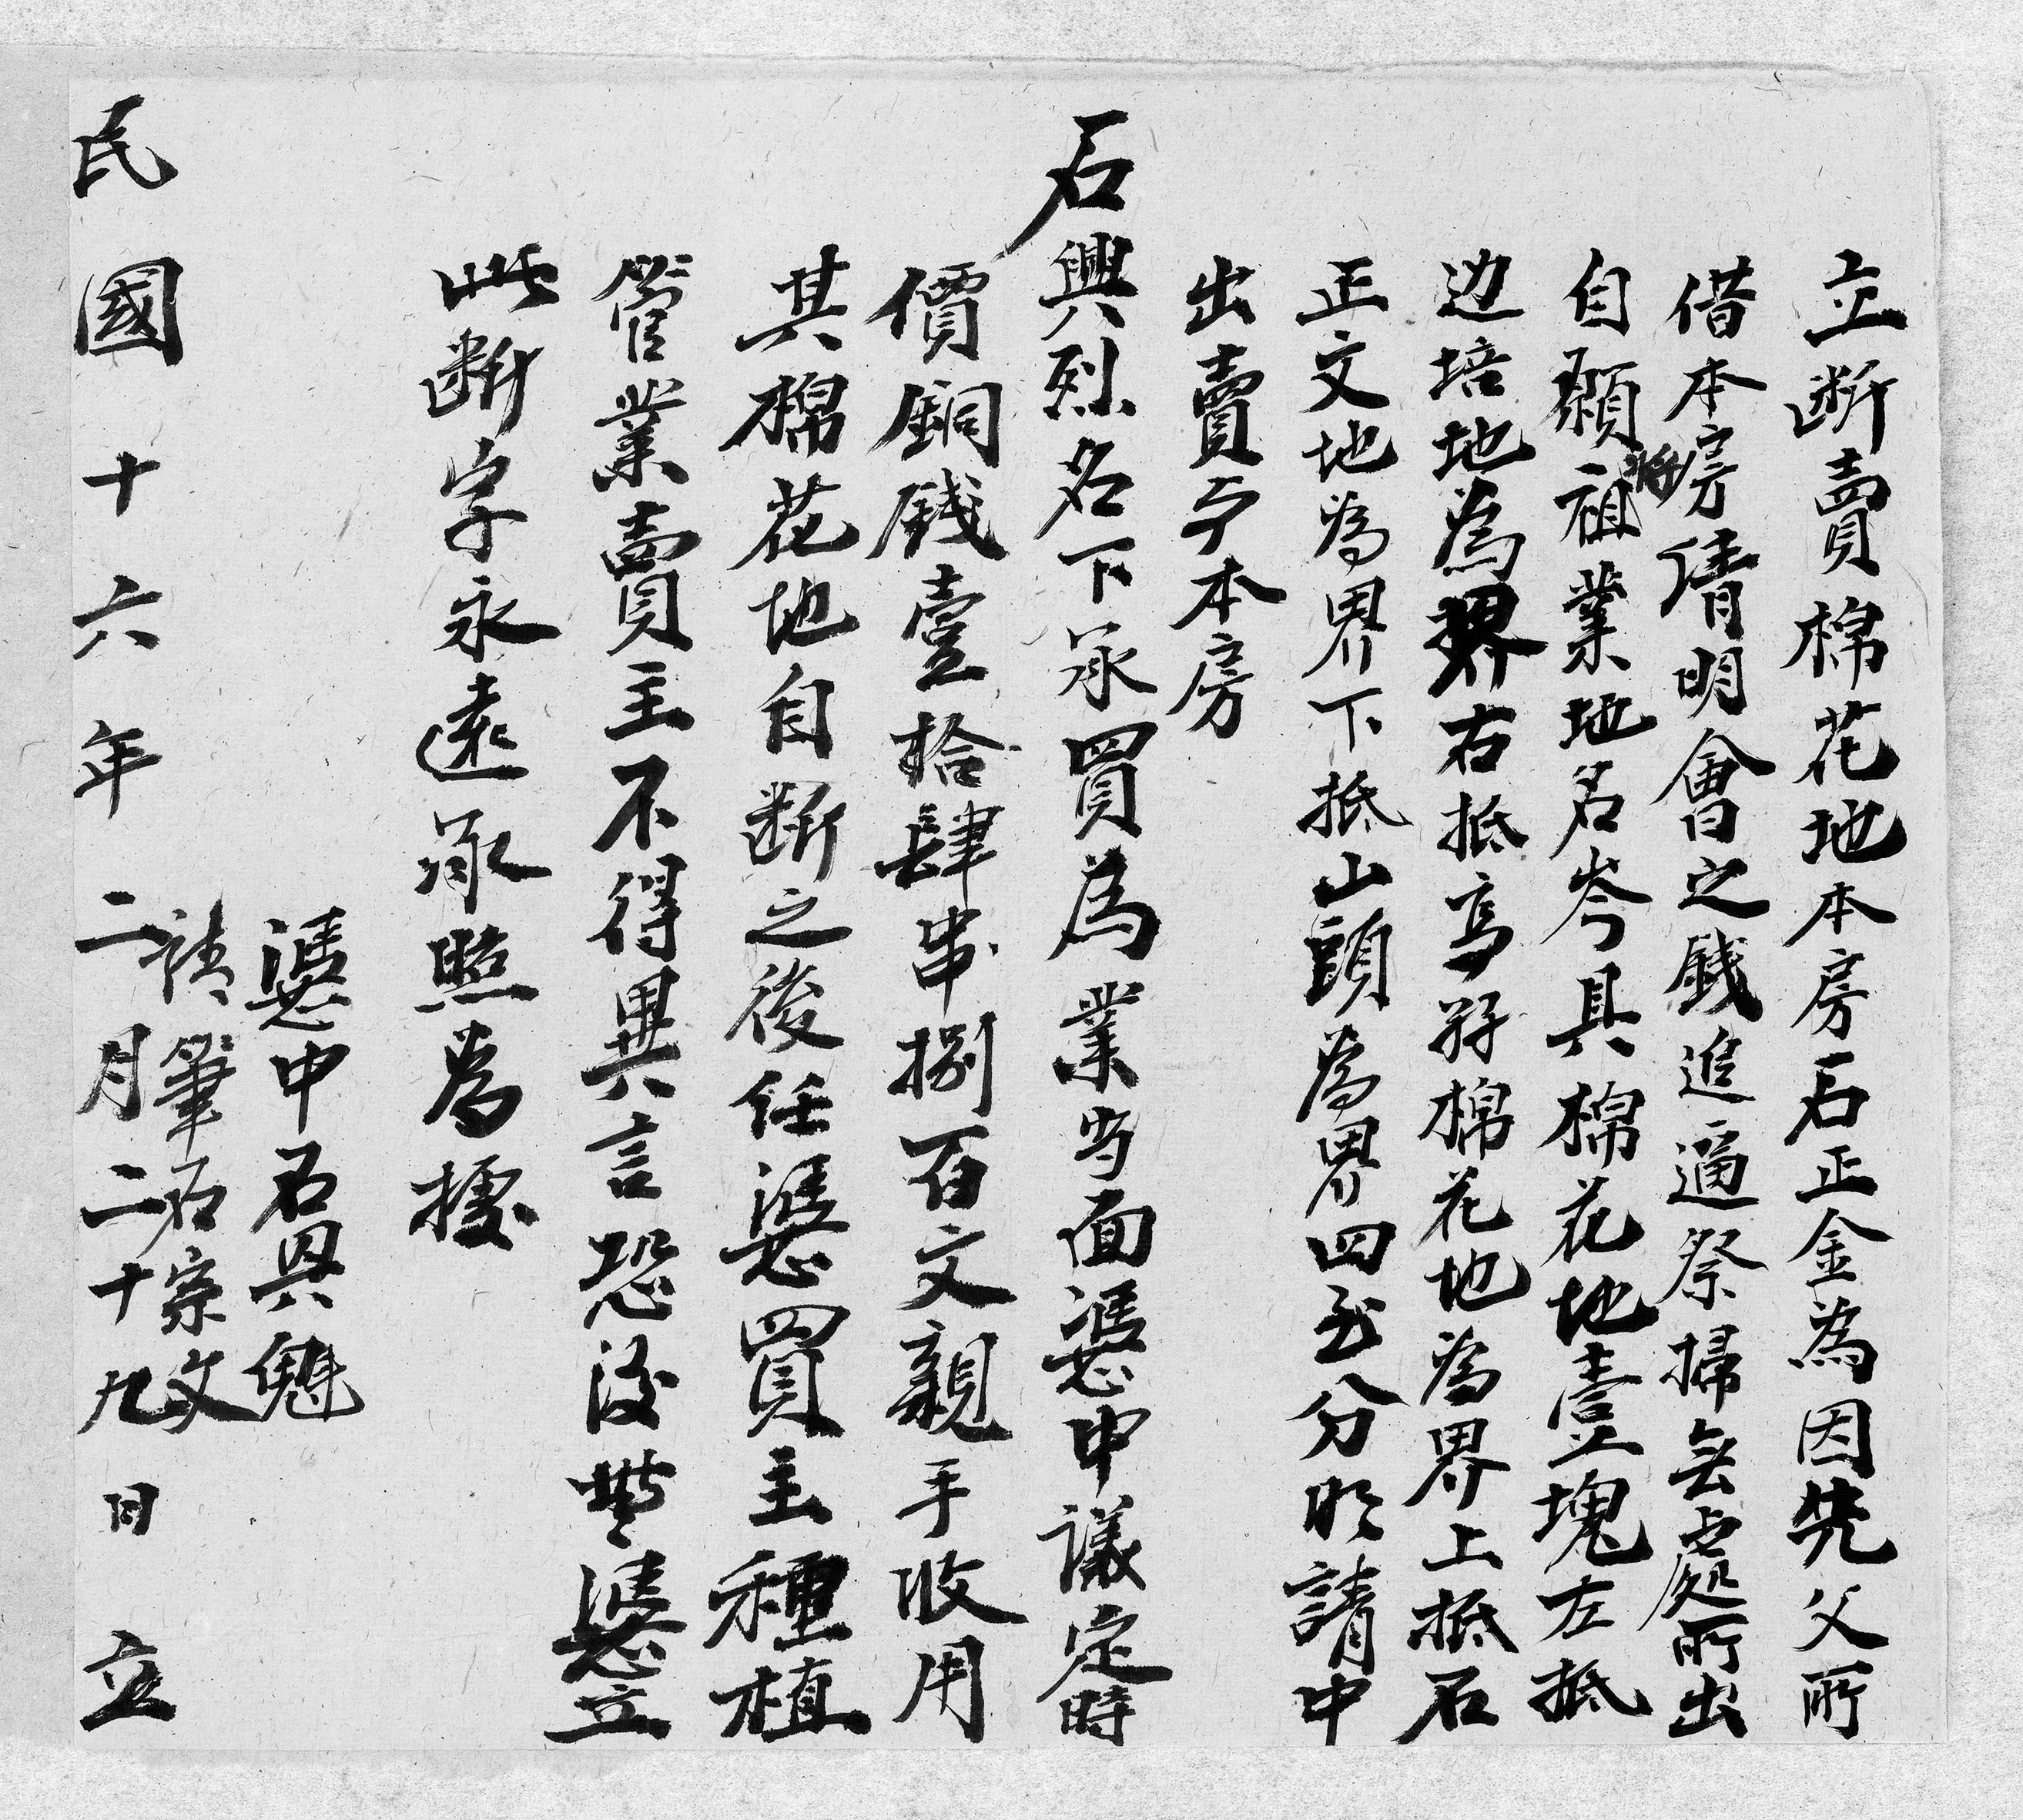 立断賣棉花地本房石正金為因先父所
借本房清明會之錢追逼祭掃無处所出
自願將祖業地名岑具棉花地壹塊左抵
边培地為界右抵高孖棉花地為界上抵石
正文地為界下抵山頭為界四至分明請中
出賣与本房
石興烈名下承買為業当面憑中議定時
價銅錢壹拾肆串捌百文親手收用
其棉花地自断之後任憑買主種植
管業賣主不得異言恐後無憑立
此断字永遠承照為據
憑中石具魁
請筆石宗文
民國十六年二月二十九日立